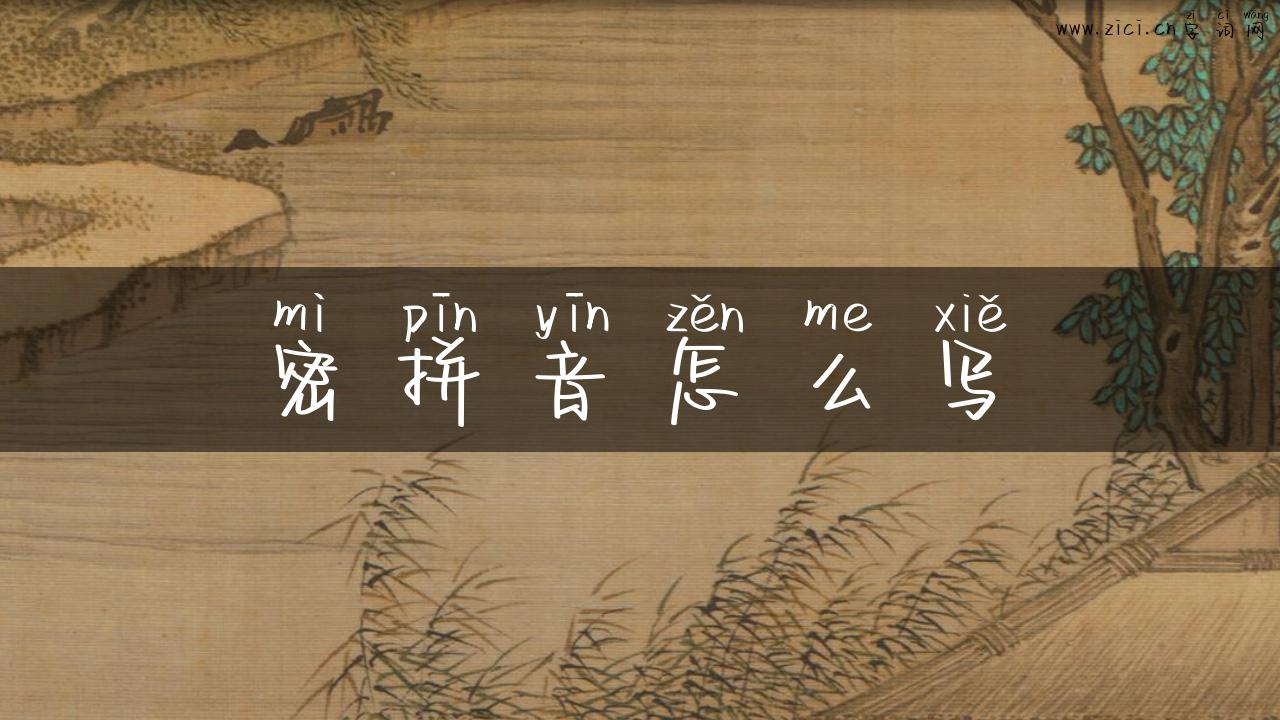 zì cí wǎng
www.zici.cn 字 词 网
mì pīn yīn zěn me xiě
密 拼 音 怎 么 写